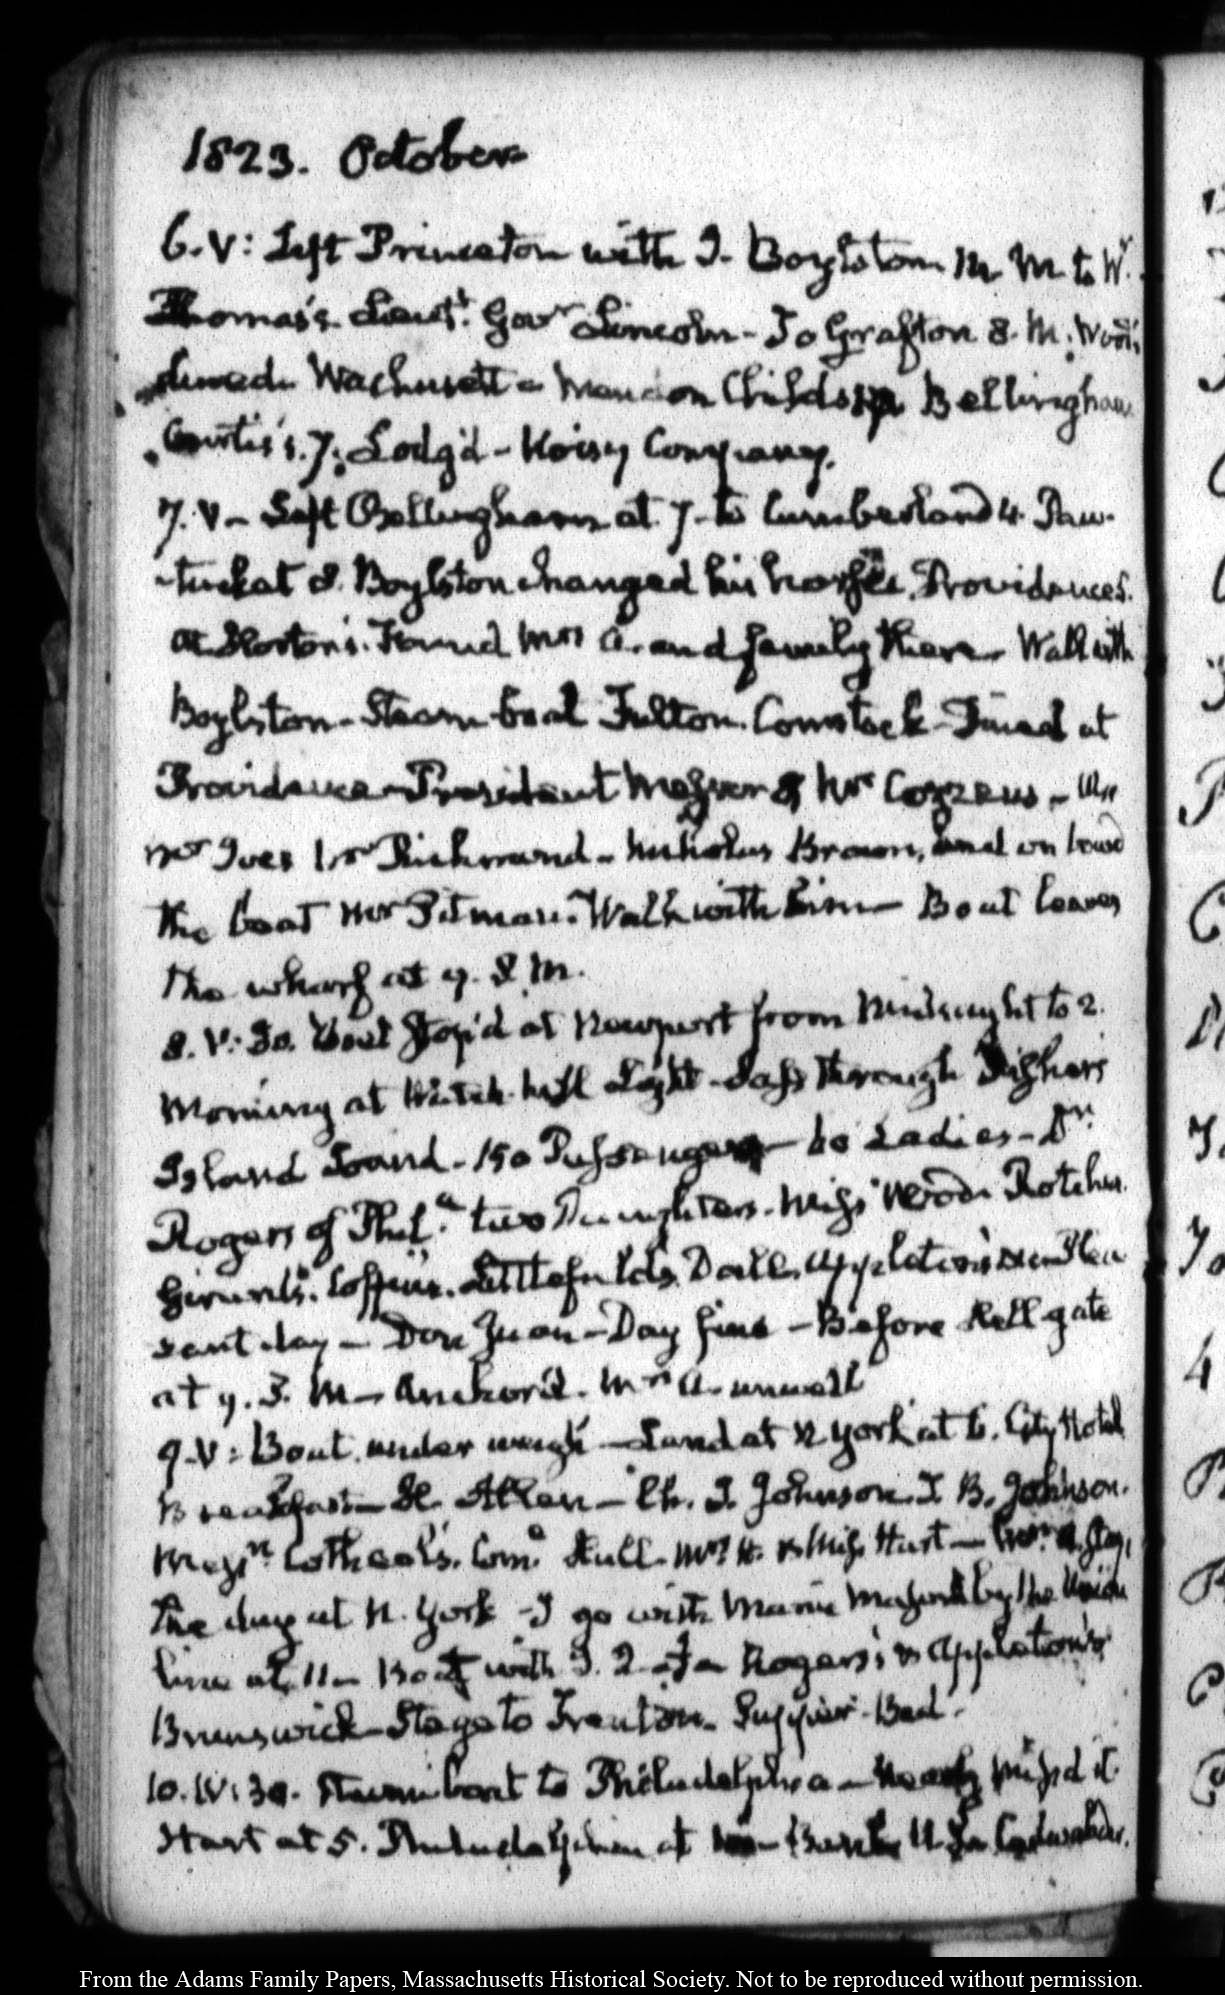 1823. October
6. V: Left Princeton with J. Boylston to W.
Thomas's Lieut. Govr Lincoln - To Grafton 8. M.
Wachusett - Mendon Childs Bellingham
Curtis's. 7. Lodg'd - Noisy Company.
7. V - Left Bellingham at 7 to Cumberland 4. Paw-
-tucket 8. Boylston changed his horses. Providence
at Horton's. Found Mrs A. and family there. Walk with
Boylston - Steam boat Fulton. Comstock - Dined at
Providence - President Messer & Mr Cozzens -
Mr Ives Mr Richmond - Nicholas Brown, and on board
the boat Mr Pitman. Walk with him - Boat leaves
the wharf at
8. V: 30. Boat Stop'd at Newport from Midnight to 2.
Morning at Watch-hill Light - Pass through Fishers
Island Sound - 150 Passengers - 60 Ladies - Dr
Rogers of Phil.a two Daughters. Miss Rotche
Coffin. Littlefields. Dall. Appleton's Plea
sant day - Don Juan - Day fine - Before Hellgate
at Anchor'd. Mrs A. unwell
9. V: Boat under weigh - Land at N York at 6. City Hotel
Breakfast - H. Allen - Ch. J. Johnson. J. B. Johnson.
Comr Hull. Mrs H. & Miss Hart -
the day at N. York - I go with by the Union
line at 11 - Boat with Rogers's & Appleton's
Brunswick - Stage to Trenton. Supper. Bed.
10. IV: 30. Steam boat to Philadelphia - nearly miss'd it.
Start at 5. Philadelphia at Cadwalader.
From the Adams Family Papers, Massachusetts Historical Society. Not to be reproduced without permission.